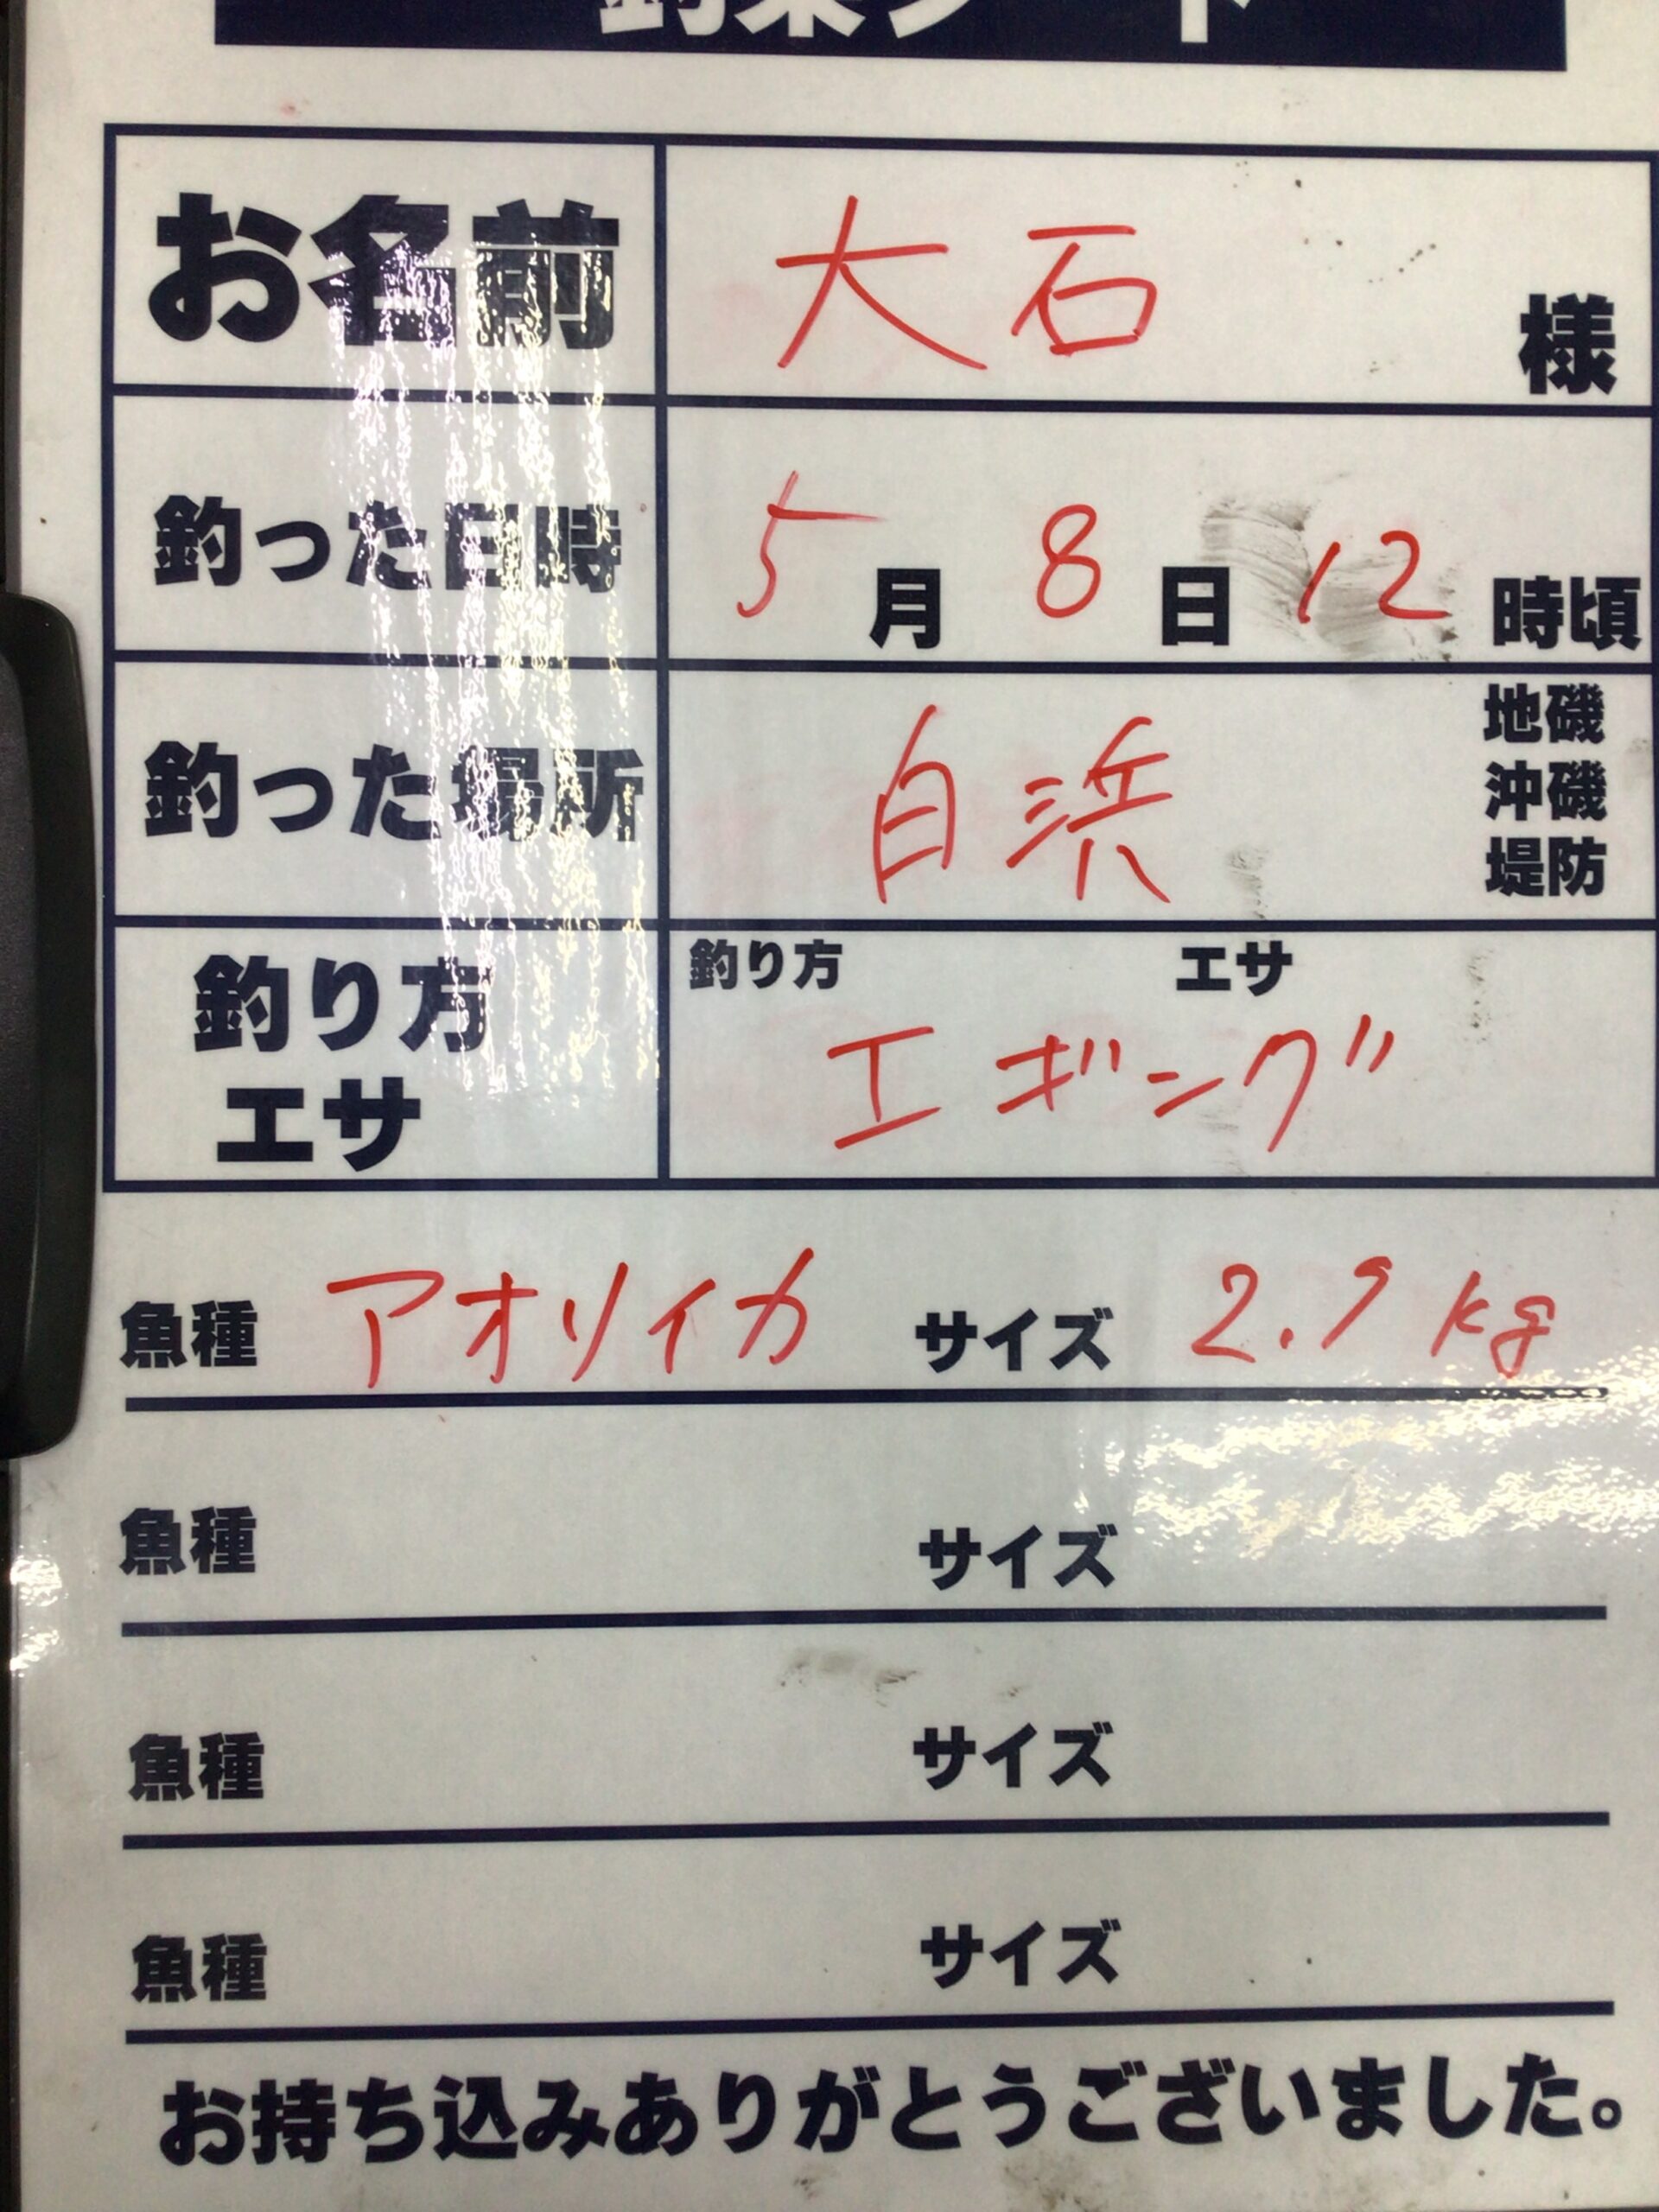 釣果シート
お名前 大石 様
釣った日時 5月8日12時頃
釣った場所 白浜 地磯 沖磯 堤防
釣り方 エサ
釣り方 エサ
エギング
魚種 アオリイカ サイズ 2.9kg
魚種 サイズ
魚種 サイズ
魚種 サイズ
お持ち込みありがとうございました。